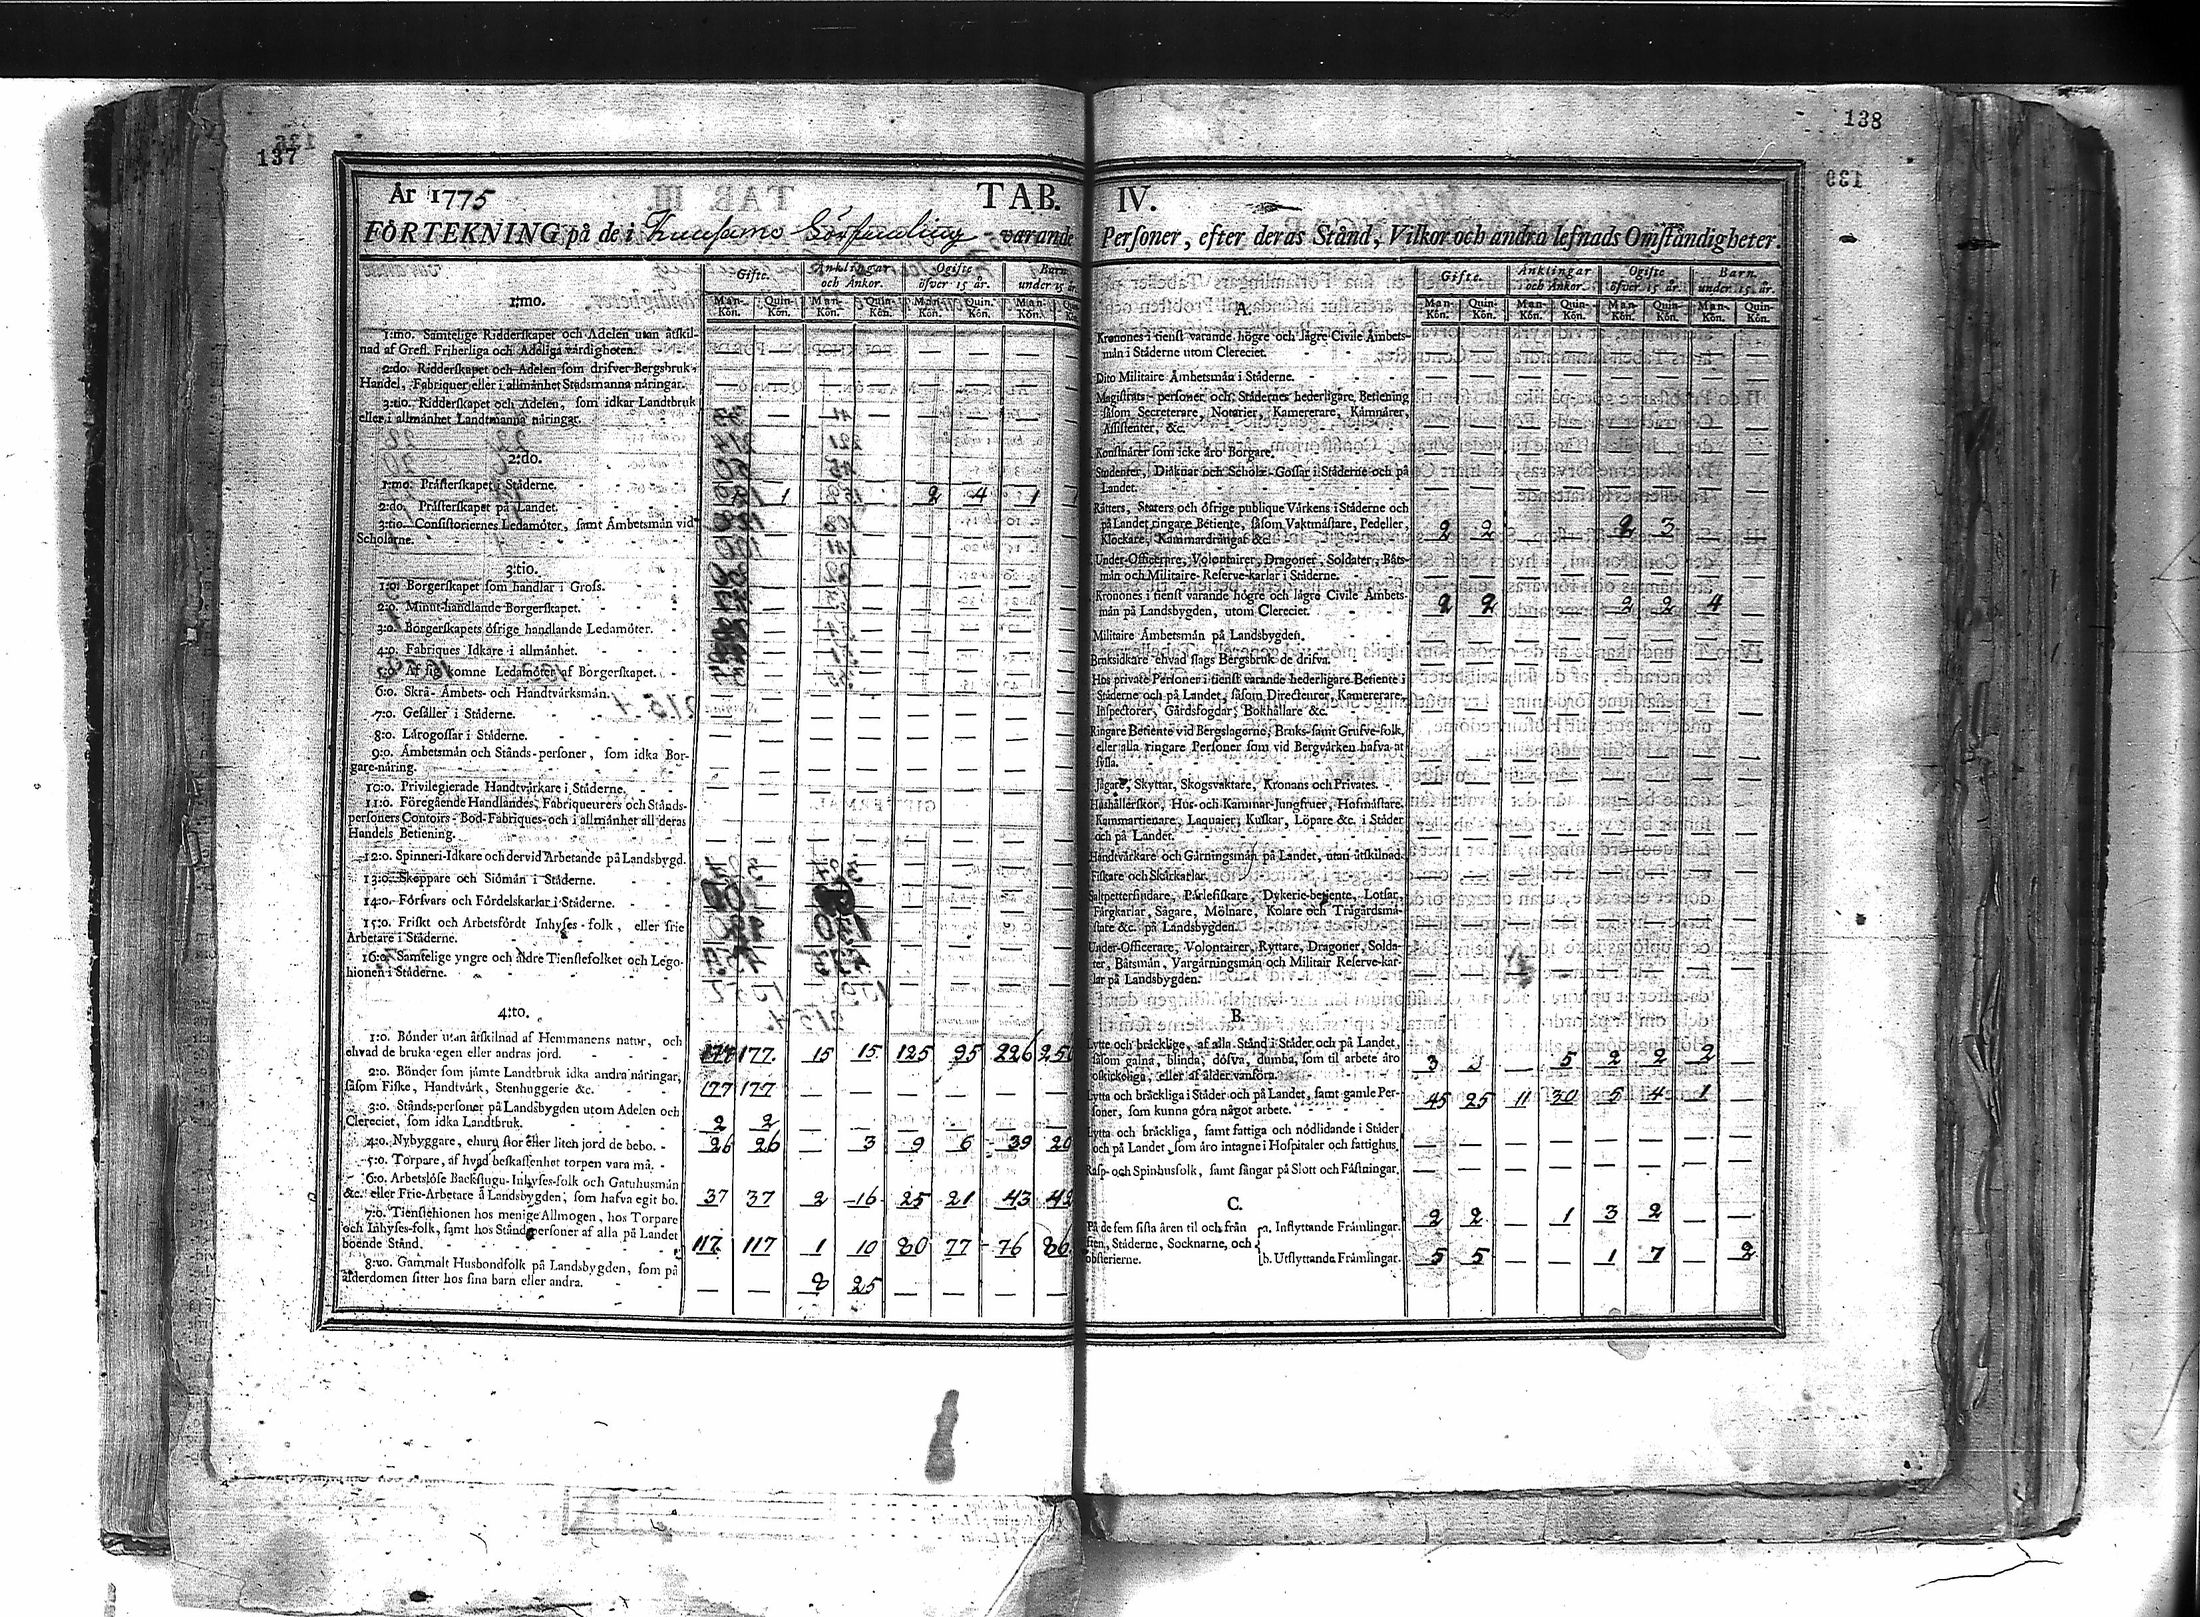 137
138
År 1775 TAB. IV.
FÖRTEKNING på de i Kuusamo Församling varande Personer, efter deras Stånd, Vilkor och andra lefnads Omständigheter.
Gifte. Änklingar och Änkor. Ogifte öfver 15 år. Barn under 15 år.
Man-Kön. Quin-Kön. Man-Kön. Quin-Kön. Man-Kön. Quin-Kön. Man-Kön. Quin-Kön.
1:mo.
1:mo. Samtelige Ridderskapet och Adelen utan åtskil-
nad af Grefl. Friherliga och Adeliga värdigheter. — — — — — — —
2:do. Ridderskapet och Adelen som drifver Bergsbruk,
Handel, Fabriquer eller i allmänhet Stadsmanna näringar.
3:tio. Ridderskapet och Adelen, som idkar Landtbruk
eller i allmänhet Landtmanna näringar.
2:do.
1:mo. Prästerskapet i Städerne.
2:do. Prästerskapet på Landet. 1 1 2 4 1
3:tio. Consistoriernes Ledamöter, samt Ämbetsmän vid
Scholarne.
3:tio.
1:o. Borgerskapet som handlar i Gross.
2:o. Minut-handlande Borgerskapet.
3:o. Borgerskapets öfrige handlande Ledamöter.
4:o. Fabriques Idkare i allmänhet.
5:o. Af sig komne Ledamöter af Borgerskapet.
6:o. Skrå-Ämbets- och Handtvärksmän.
7:o. Gesäller i Städerne.
8:o. Lärogossar i Städerne.
9:o. Ämbetsmän och Stånds-personer, som idka Bor-
gare-näring.
10:o. Privilegierade Handtvärkare i Städerne.
11:o. Föregående Handlandes, Fabriqueurers och Stånds-
personers Contoirs- Bod-Fabriques- och i allmänhet all deras
Handels Betiening.
12:o. Spinneri-Idkare och dervid Arbetande på Landsbygd.
13:o. Skeppare och Siömän i Städerne.
14:o. Försvars och Fördelskarlar i Städerne.
15:o. Friskt och Arbetsfördt Inhyses-folk, eller frie
Arbetare i Städerne.
16:o. Samtelige yngre och äldre Tienstefolket och Lego-
hionen i Städerne.
4:to.
1:o. Bönder utan åtskilnad af Hemmanens natur, och
ehvad de bruka egen eller andras jord. 177 177 15 15 125 95 226
2:o. Bönder som jämte Landtbruk idka andra näringar,
såsom Fiske, Handtvärk, Stenhuggerie &c. 177 177 — — — — —
3:o. Stånds-personer på Landsbygden utom Adelen och
Clereciet, som idka Landtbruk. 2 2 — — — — —
4:o. Nybyggare, ehuru stor eller liten jord de bebo. 26 26 — 3 9 6 39 20
5:o. Torpare, af hvad beskaffenhet torpen vara må.
6:o. Arbetslöse Backstugu-Inhyses-folk och Gatuhusmän
&c. eller Frie-Arbetare å Landsbygden, som hafva egit bo. 37 37 2 16 25 21 43 42
7:o. Tienstehionen hos menige Allmogen, hos Torpare
och Inhyses-folk, samt hos Ståndspersoner af alla på Landet
boende Stånd. 117 117 1 10 80 77 76 86
8:vo. Gammalt Husbondfolk på Landsbygden, som på
ålderdomen sitter hos sina barn eller andra. — — 8 25 — — — —
Gifte. Änklingar och Änkor. Ogifte öfver 15 år. Barn under 15 år.
Man-Kön. Quin-Kön. Man-Kön. Quin-Kön. Man-Kön. Quin-Kön. Man-Kön. Quin-Kön.
A.
Kronones i tienst varande högre och lägre Civile Ämbets-
män i Städerne utom Clereciet. — — — — — — — —
Dito Militaire Ämbetsmän i Städerne. — — — — — — — —
Magistrats-personer och Städernes hederligare Betiening
såsom Secreterare, Notarier, Kamererare, Kämnärer,
Assistenter, &c. — — — — — — — —
Konstnärer som icke äro Borgare. — — — — — — — —
Studenter, Diäknar och Schole-Gossar i Städerne och på
Landet. — — — — — — — —
Rätters, Staters och öfrige publique Värkens i Städerne och
på Landet ringare Betiente, såsom Vaktmästare, Pedeller,
Klockare, Kammardrängar &c. 2 2 — — 2 3 — —
Under-Officerare, Volontairer, Dragoner, Soldater, Båts-
män och Militaire-Reserve-karlar i Städerne. — — — — — — — —
Kronones i tienst varande högre och lägre Civile Ämbets-
män på Landsbygden, utom Clereciet. 2 2 — — 2 2 4 —
Militaire Ämbetsmän på Landsbygden. — — — — — — — —
Bruksidkare ehvad slags Bergsbruk de drifva. — — — — — — — —
Hos private Personer i tienst varande hederligare Betiente i
Städerne och på Landet, såsom Directeurer, Kamererare,
Inspectorer, Gårdsfogdar, Bokhållare &c. — — — — — — — —
Ringare Betiente vid Bergslagerne, Bruks-samt Grufve-folk,
eller alla ringare Personer som vid Bergvärken hafva at
syssla. — — — — — — — —
Jägare, Skyttar, Skogsvaktare, Kronans och Privates. — — — — — — — —
Hushållerskor, Hus- och Kammar-Jungfruer, Hofmästare,
Kammartienare, Laquaier, Kuskar, Löpare &c. i Städer
och på Landet. — — — — — — — —
Handtvärkare och Gärningsmän på Landet, utan åtskilnad. — — — — — — — —
Fiskare och Skärkarlar. — — — — — — — —
Salpettersiudare, Pärlefiskare, Dykerie-betiente, Lotsar,
Färgkarlar, Sågare, Mölnare, Kolare och Trägårdsmä-
stare &c. på Landsbygden. — — — — — — — —
Under-Officerare, Volontairer, Ryttare, Dragoner, Solda-
ter, Båtsmän, Vargärningsmän och Militair Reserve-kar-
lar på Landsbygden. — — — — — — —
B.
Lytte och bräcklige, af alla Stånd i Städer och på Landet,
såsom galna, blinda, döfva, dumba, som til arbete äro
oskickelige, eller af ålder vanföra. 3 3 — 5 2 2 2 —
Lytta och bräckliga i Städer och på Landet, samt gamle Per-
soner, som kunna göra något arbete. 45 25 11 30 5 4 1 —
Lytta och bräckliga, samt fattiga och nödlidande i Städer
och på Landet, som äro intagne i Hospitaler och fattighus. — — — — — — — —
Rasp- och Spinhusfolk, samt fångar på Slott och Fästningar. — — — — — — — —
C.
På de fem sista åren til och från
a. Inflyttande Främlingar. 2 2 — 1 3 2 — —
Städerne, Socknarne, och
b. Utflyttande Främlingar. 5 5 — — 1 7 — 2